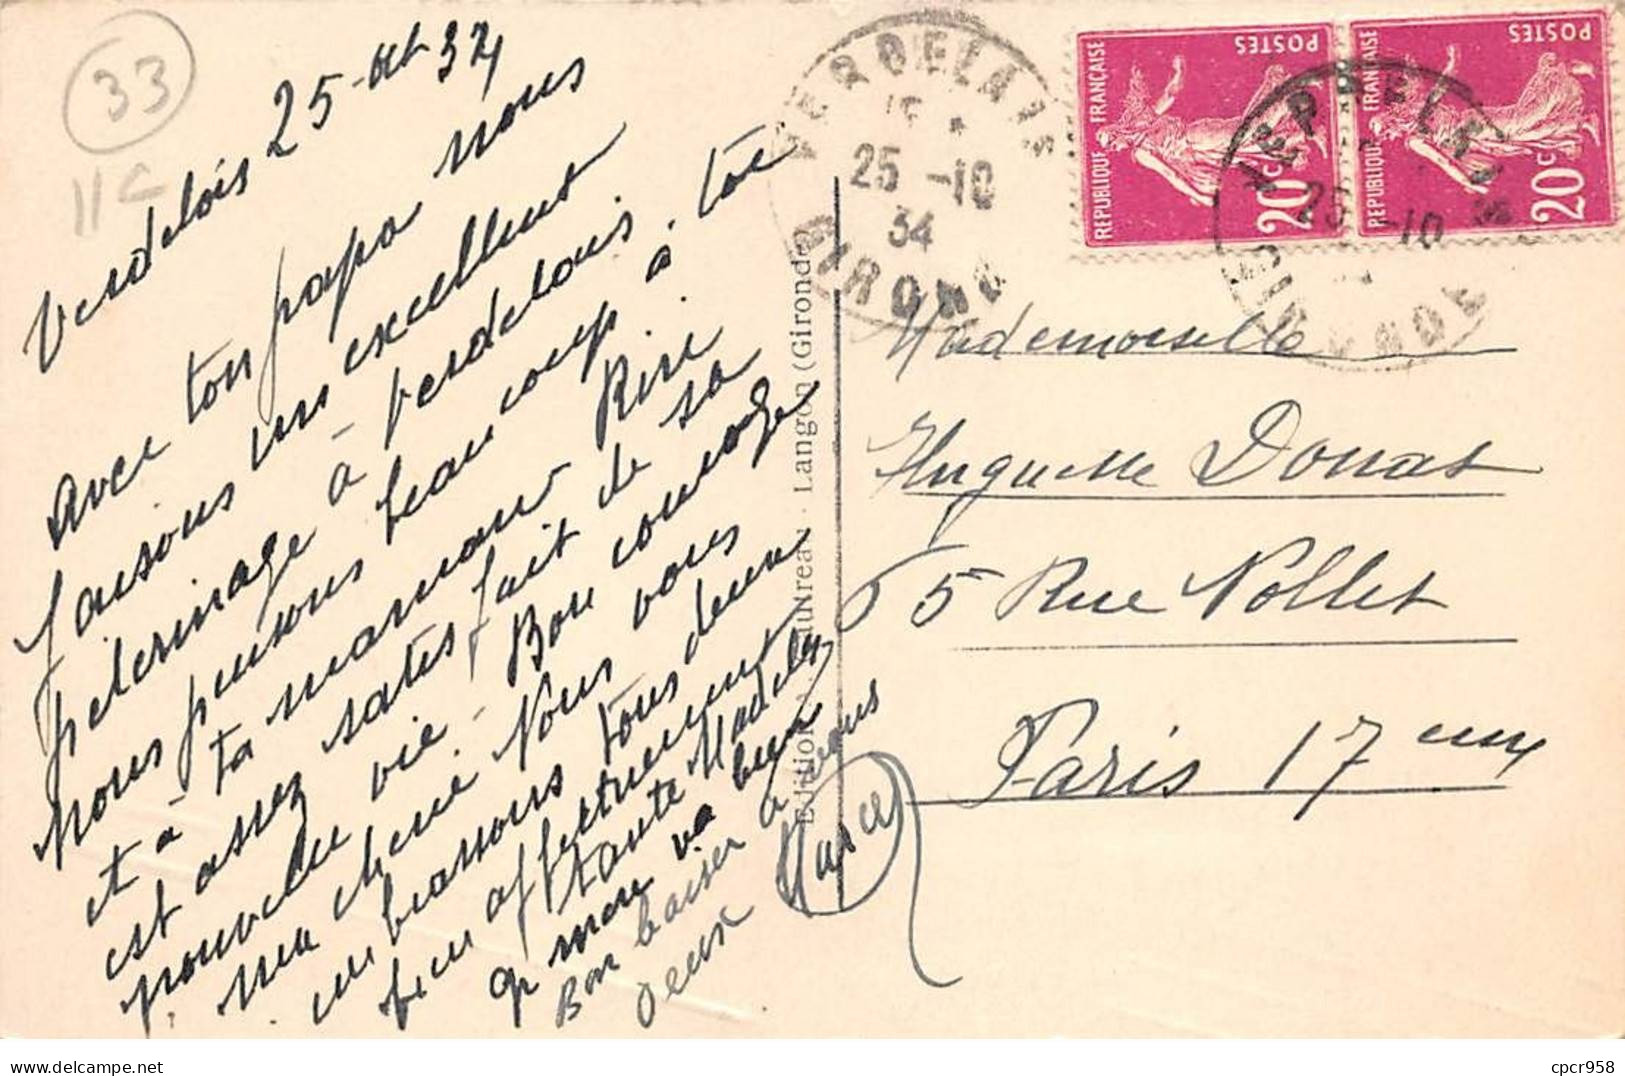 33
11C
Verdelais 25-Oct 34
Avec ton papa nous
faisons un excellent
pèlerinage à Verdelais.
nous pensons beaucoup à toi
et à ta maman Rini
est assez satisfait de sa
nouvelle vie - Bon courage
ma chérie. Nous vous
embrassons tous deux
bien affectueusement
Tante Madeley
va bien
Bon baiser à vous
deux Marcel
VERDELAIS
25 -10
34
GIRONDE
REPUBLIQUE FRANÇAISE
POSTES
20c
REPUBLIQUE FRANÇAISE
POSTES
20c
VERDELAIS
25 -10
34
GIRONDE
Langon (Gironde)
Mademoiselle
Huguette Donat
65 Rue Nollet
Paris 17 eme
cpcr958